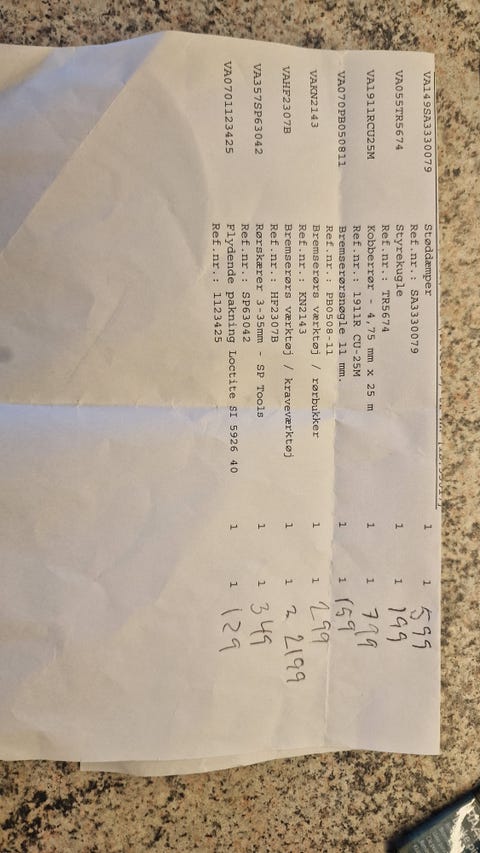 VA149SA3330079 Støddæmper 1 1 599
Ref.nr.: SA3330079
VA055TR5674 Styrekugle 1 1 199
Ref.nr.: TR5674
VA1911RCU25M Kobberrør - 4,75 mm x 25 m 1 1 799
Ref.nr.: 1911R CU-25M
VA070PB050811 Bremserørsnøgle 11 mm. 1 1 159
Ref.nr.: PB0508-11
VAKN2143 Bremserørs værktøj / rørbukker 1 1 299
Ref.nr.: KN2143
VAHF2307B Bremserørs værktøj / kraveværktøj 1 1 2199
Ref.nr.: HF2307B
VA357SP63042 Rørskærer 3-35mm - SP Tools 1 1 349
Ref.nr.: SP63042
VA0701123425 Flydende pakning Loctite SI 5926 40 1 1 129
Ref.nr.: 1123425